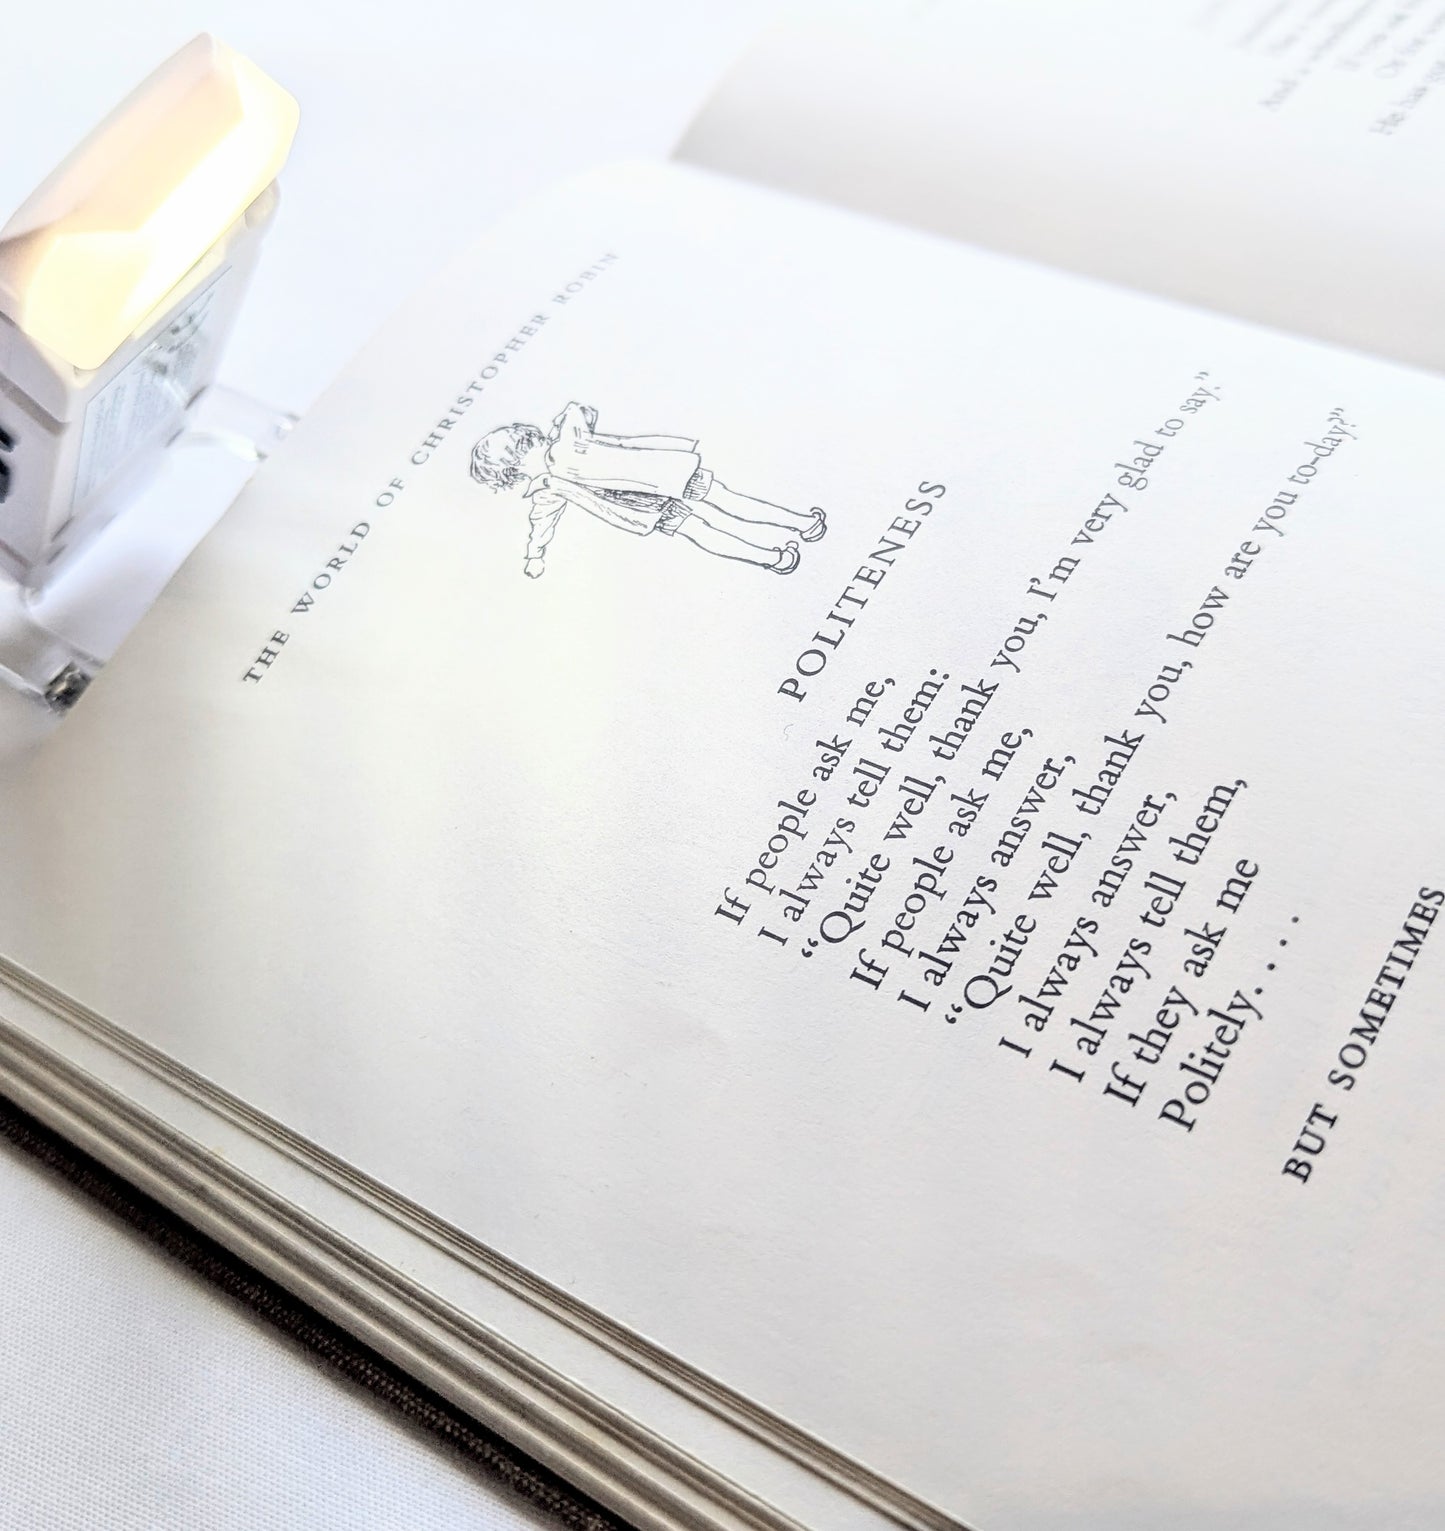 THE WORLD OF CHRISTOPHER ROBIN
POLITENESS
If people ask me,
I always tell them:
“Quite well, thank you, I’m very glad to say.”
If people ask me,
I always answer,
“Quite well, thank you, how are you to-day?”
I always answer,
I always tell them,
If they ask me
Politely. . . .
BUT SOMETIMES
And a
He has